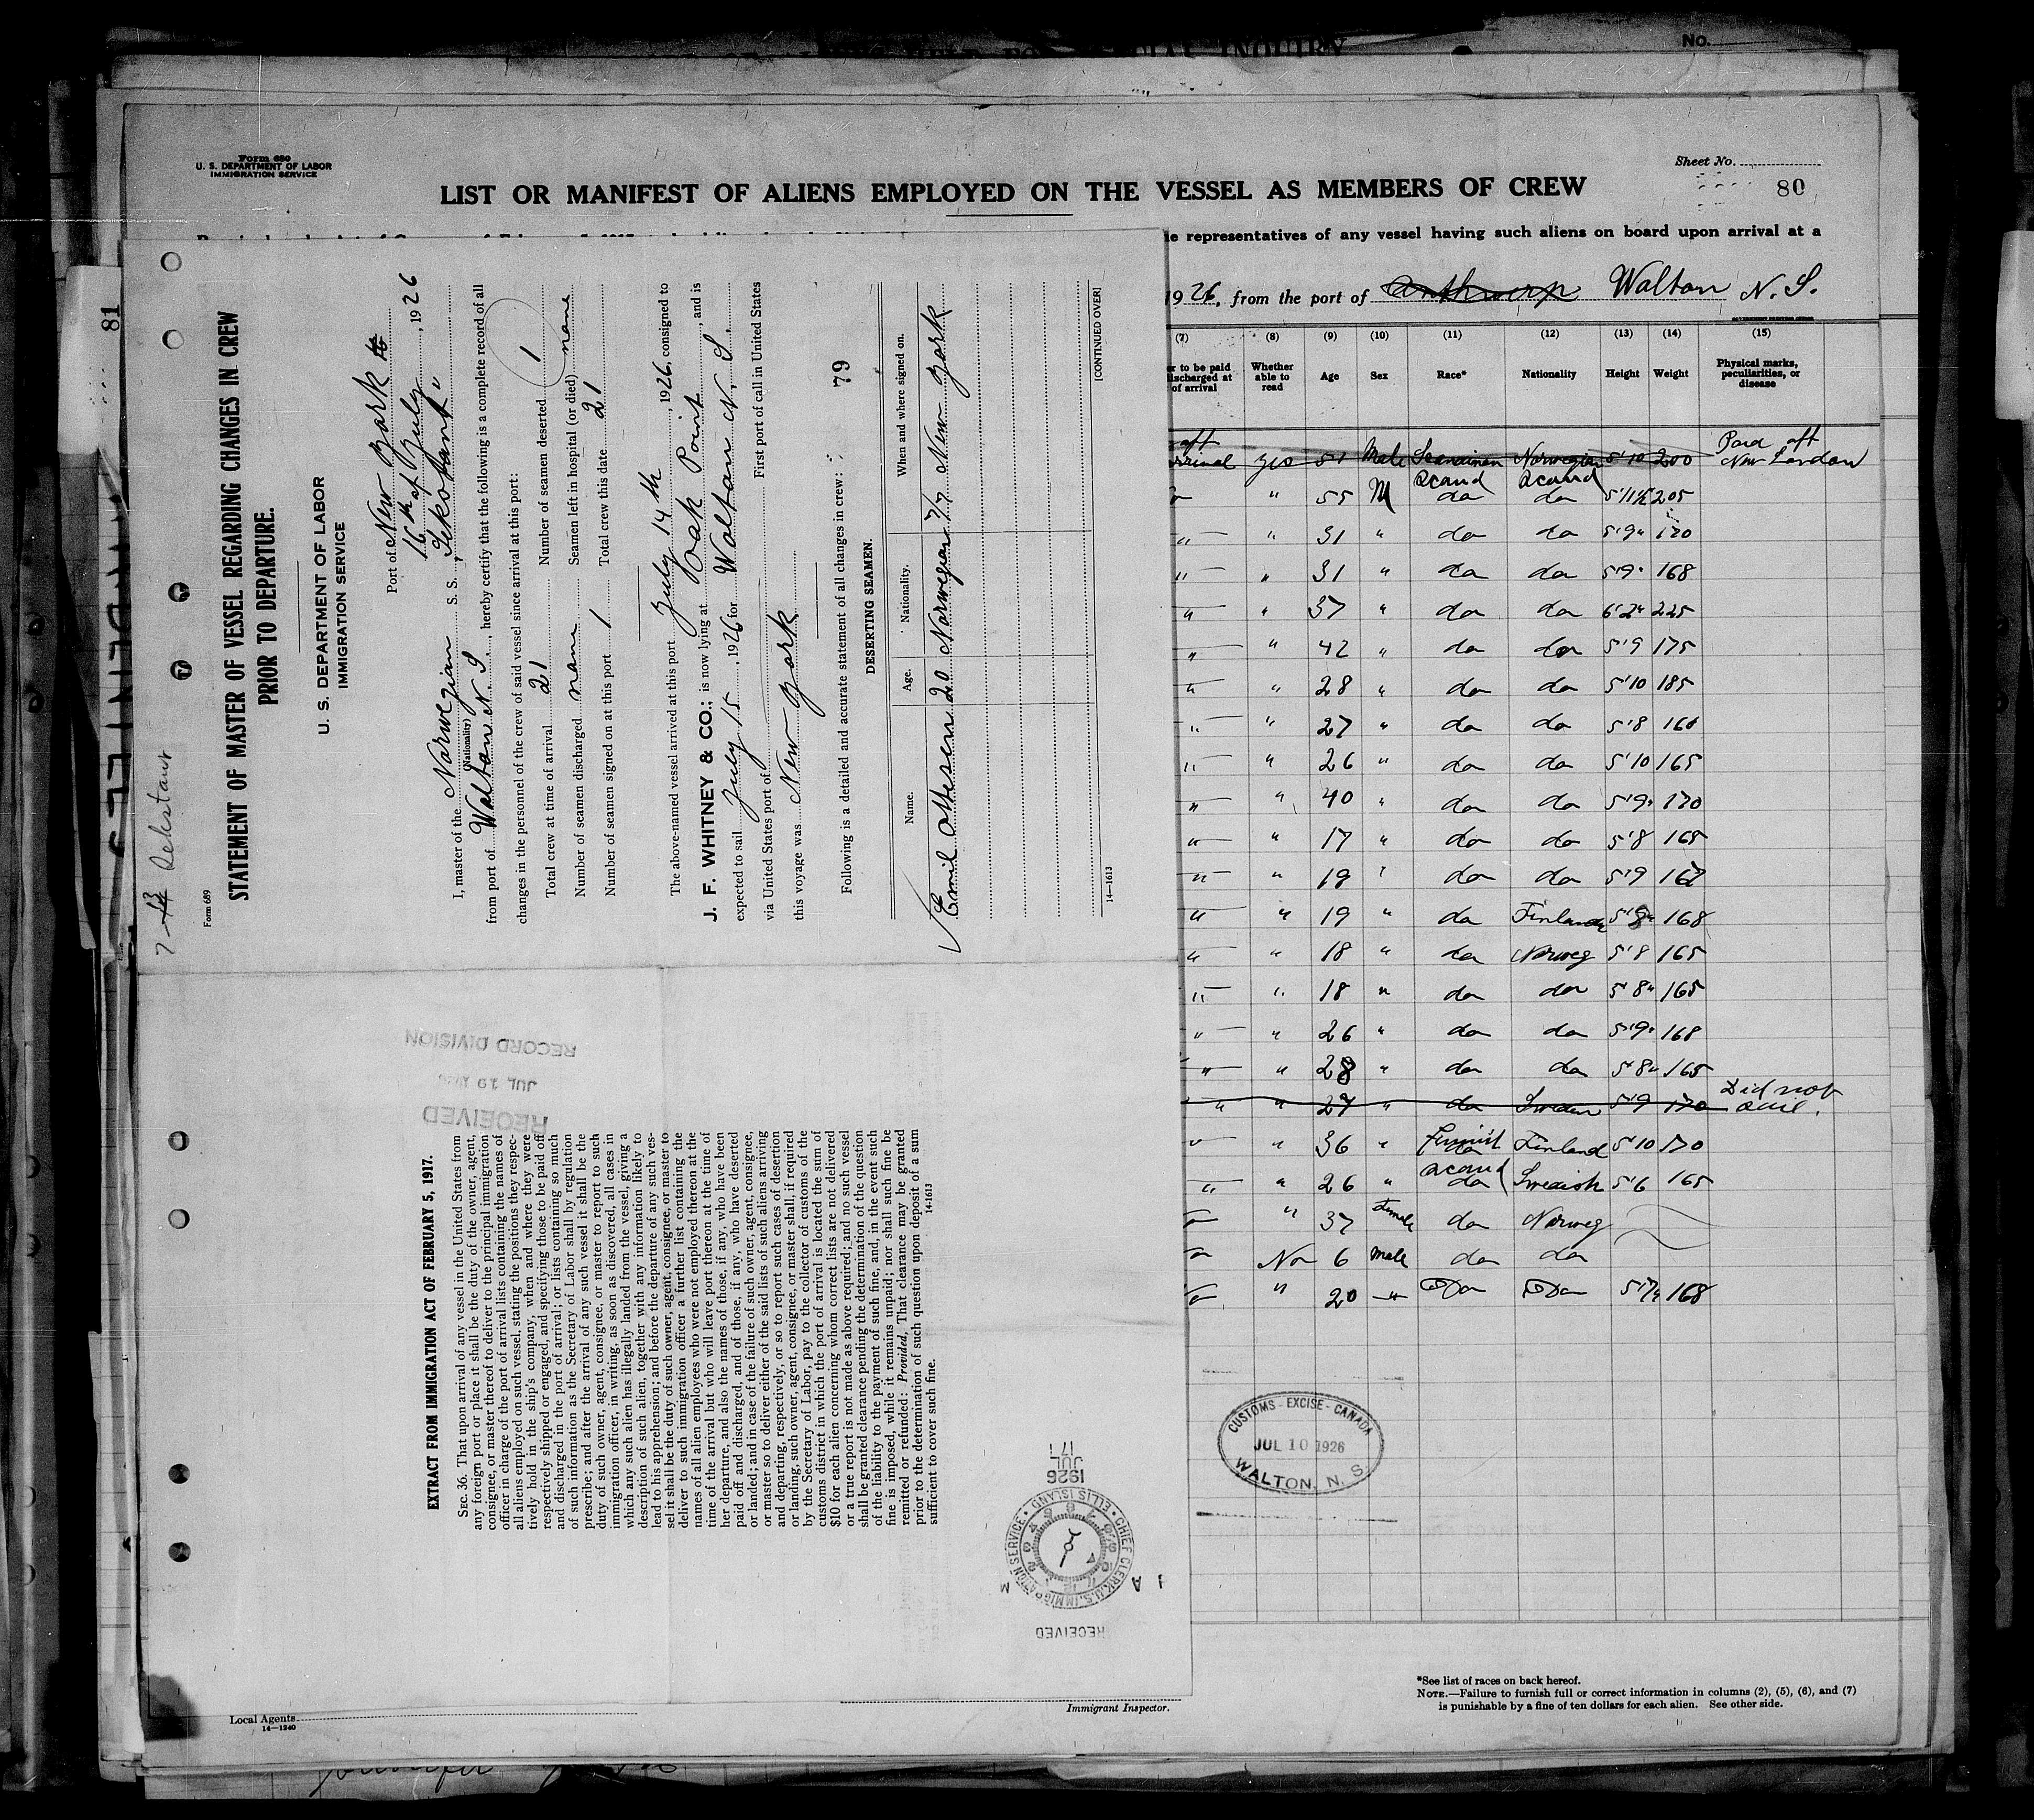 No.
Form 680
U. S. DEPARTMENT OF LABOR
IMMIGRATION SERVICE
Sheet No.
80
LIST OR MANIFEST OF ALIENS EMPLOYED ON THE VESSEL AS MEMBERS OF CREW
representatives of any vessel having such aliens on board upon arrival at a
1926, from the port of Anthwerp Walton N. S.
(7) (8) (9) (10) (11) (12) (13) (14) (15)
er to be paid discharged at of arrival
Whether able to read
Age
Sex
Race*
Nationality
Height
Weight
Physical marks, peculiarities, or disease
yes 51 Male Norwegian 5'10 200 Paid off New London
Scand Scand
" 55 M do do 5'11½ 205
" 31 " do do 5'9" 170
" 31 " do do 5'9" 168
" 37 " do do 6'2" 225
" 42 " do do 5'9 175
" 28 " do do 5'10 185
" 27 " do do 5'8 160
" 26 " do do 5'10 165
" 40 " do do 5'9" 170
" 17 " do do 5'8 165
" 19 " do do 5'9 167
" 19 " do Finland 5'8" 168
" 18 " do Norweg 5'8 165
" 18 " do do 5'8" 165
" 26 " do do 5'9" 168
" 28 " do do 5'8" 165
" 27 " do Sweden 5'9 170 Did not sail.
" 36 " Finnish do Finland 5'10 170
" 26 " Scand do Swedish 5'6 165
" 37 Female do Norweg
No 6 Male do do
" 20 " Do Do 5'7½ 168
CUSTOMS-EXCISE-CANADA
JUL 10 1926
WALTON, N. S.
*See list of races on back hereof.
NOTE.—Failure to furnish full or correct information in columns (2), (5), (6), and (7)
is punishable by a fine of ten dollars for each alien. See other side.
Immigrant Inspector.
Local Agents
14—1240
81
Form 689
STATEMENT OF MASTER OF VESSEL REGARDING CHANGES IN CREW
PRIOR TO DEPARTURE.
U. S. DEPARTMENT OF LABOR
IMMIGRATION SERVICE
Port of New York
16th of July, 1926
I, master of the Norwegian S. S. "Sekstant"
(Nationality)
from port of Walton N S, hereby certify that the following is a complete record of all
changes in the personnel of the crew of said vessel since arrival at this port:
Total crew at time of arrival 21 Number of seamen deserted 1
Number of seamen discharged none Seamen left in hospital (or died) none
Number of seamen signed on at this port 1 Total crew this date 21
The above-named vessel arrived at this port July 14th, 1926, consigned to
J. F. WHITNEY & CO.; is now lying at Oak Point, and is
expected to sail July 15, 1926 for Walton N. S.
via United States port of First port of call in United States
this voyage was New York
Following is a detailed and accurate statement of all changes in crew:
79
DESERTING SEAMEN.
Name. Age. Nationality. When and where signed on.
Emil Ottesen 20 Norwegian 7/7 New York
14—1613
[CONTINUED OVER]
RECORD DIVISION
JUL 19 1926
RECEIVED
EXTRACT FROM IMMIGRATION ACT OF FEBRUARY 5, 1917.
SEC. 36. That upon arrival of any vessel in the United States from
any foreign port or place it shall be the duty of the owner, agent,
consignee, or master thereof to deliver to the principal immigration
officer in charge of the port of arrival lists containing the names of
all aliens employed on such vessel, stating the positions they respec-
tively hold in the ship's company, when and where they were
respectively shipped or engaged, and specifying those to be paid off
and discharged in the port of arrival; or lists containing so much
of such information as the Secretary of Labor shall by regulation
prescribe; and after the arrival of any such vessel it shall be the
duty of such owner, agent, consignee, or master to report to such
immigration officer, in writing, as soon as discovered, all cases in
which any such alien has illegally landed from the vessel, giving a
description of such alien, together with any information likely to
lead to his apprehension; and before the departure of any such ves-
sel it shall be the duty of such owner, agent, consignee, or master to
deliver to such immigration officer a further list containing the
names of all alien employees who were not employed thereon at the
time of the arrival but who will leave port thereon at the time of
her departure, and also the names of those, if any, who have been
paid off and discharged, and of those, if any, who have deserted
or landed; and in case of the failure of such owner, agent, consignee,
or master so to deliver either of the said lists of such aliens arriving
and departing, respectively, or so to report such cases of desertion
or landing, such owner, agent, consignee, or master shall, if required
by the Secretary of Labor, pay to the collector of customs of the
customs district in which the port of arrival is located the sum of
$10 for each alien concerning whom correct lists are not delivered
or a true report is not made as above required; and no such vessel
shall be granted clearance pending the determination of the question
of the liability to the payment of such fine, and, in the event such
fine is imposed, while it remains unpaid; nor shall such fine be
remitted or refunded: Provided, That clearance may be granted
prior to the determination of such question upon deposit of a sum
sufficient to cover such fine.
14-1613
1926
JUL 17
CHIEF CLERK, U.S. IMMIGRATION SERVICE · ELLIS ISLAND
RECEIVED